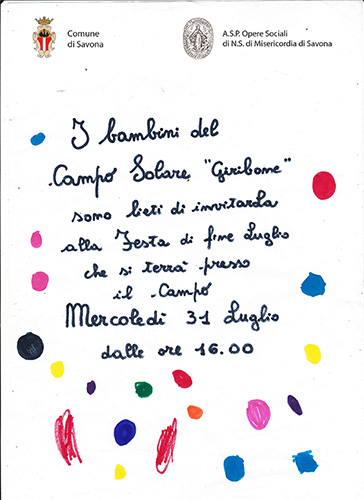 Comune
di Savona
A.S.P. Opere Sociali
di N.S. di Misericordia di Savona
I bambini del
Campo Solare "Giribone"
sono lieti di invitarLa
alla Festa di fine Luglio
che si terrà presso
il Campo
Mercoledì 31 Luglio
dalle ore 16.00